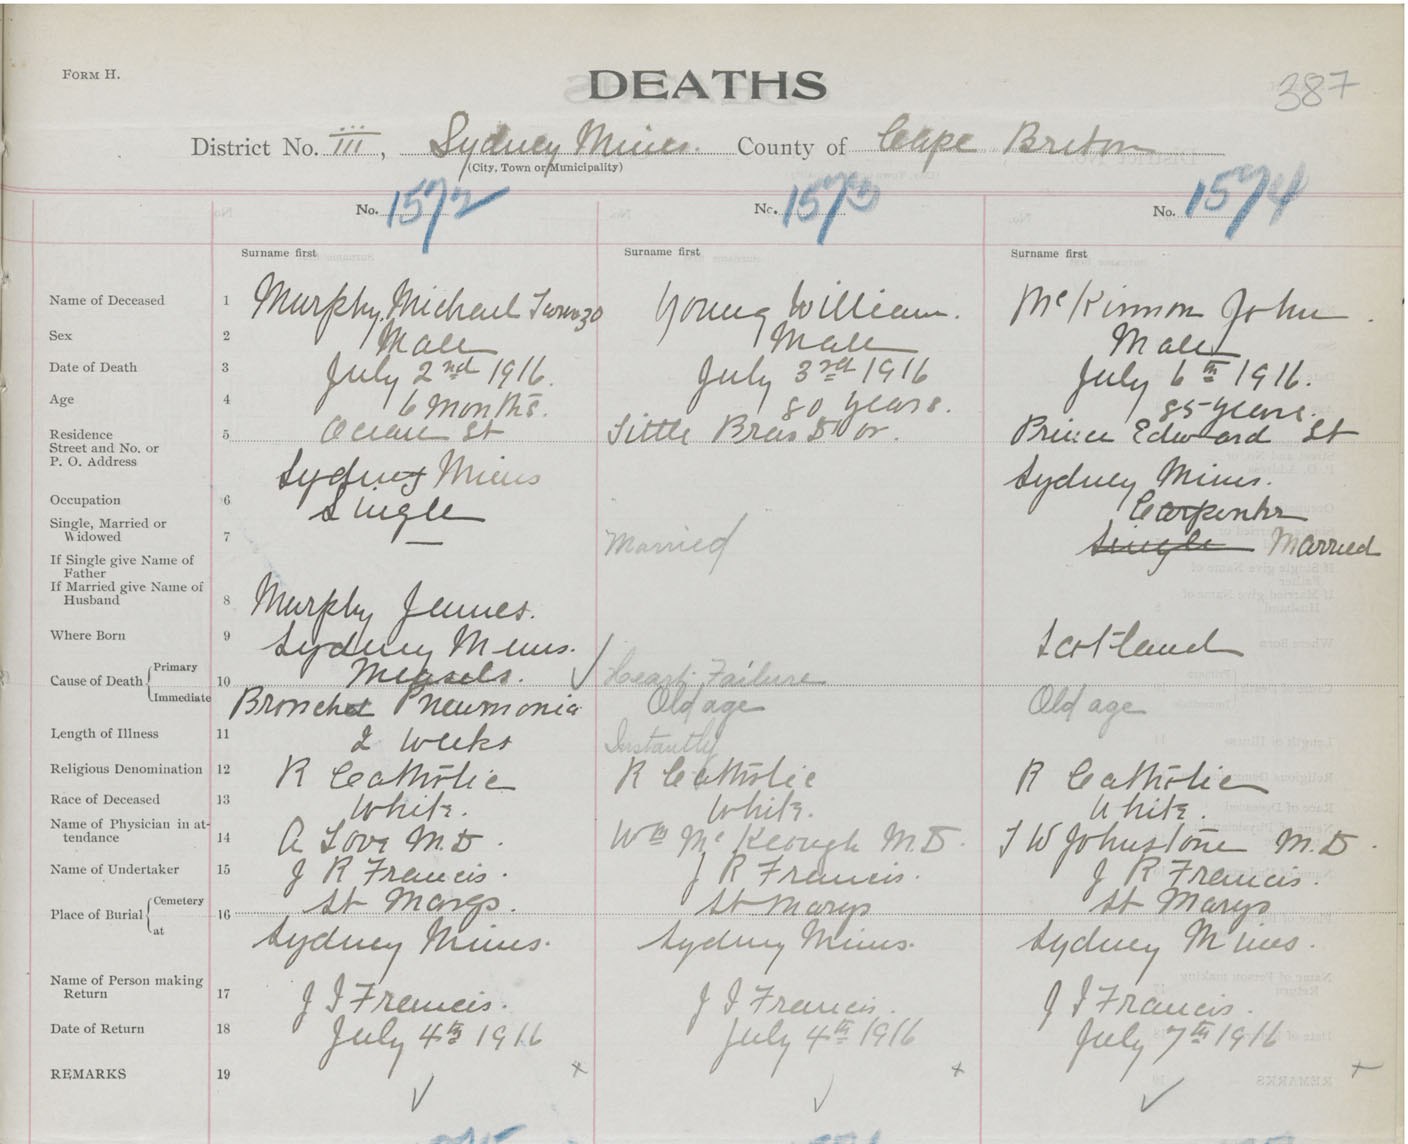 FORM H.
DEATHS
387
District No. III, Sydney Mines. County of Cape Breton
(City, Town or Municipality)
No. 1572 No. 1573 No. 1574
Surname first Surname first Surname first
Name of Deceased 1 Murphy, Michael Young William. McKinnon John.
Sex 2 Male Male Male
Date of Death 3 July 2nd 1916. July 3rd 1916 July 6th 1916.
Age 4 6 Months. 80 years. 85 years.
Residence 5 Ocean St Little Bras D'or. Prince Edward St
Street and No. or
P. O. Address Sydney Mines Sydney Mines.
Occupation 6 Single Carpenter
Single, Married or
Widowed 7 — Married Single Married
If Single give Name of
Father
If Married give Name of
Husband 8 Murphy James.
Where Born 9 Sydney Mines. Scotland
Cause of Death Primary 10 Measels. Heart Failure
Immediate Pneumonia Old age Old age
Length of Illness 11 2 weeks Instantly
Religious Denomination 12 R Catholic R Catholic R Catholic
Race of Deceased 13 White. White. White.
Name of Physician in at-
tendance 14 A Love M.D. Wm McKeough M.D. T W Johnstone M.D.
Name of Undertaker 15 J R Francis. J R Francis. J R Francis.
Place of Burial Cemetery 16 St Marys. St Marys St Marys
at Sydney Mines. Sydney Mines. Sydney Mines.
Name of Person making
Return 17 J J Francis. J J Francis. J J Francis.
Date of Return 18 July 4th 1916 July 4th 1916 July 7th 1916
REMARKS 19